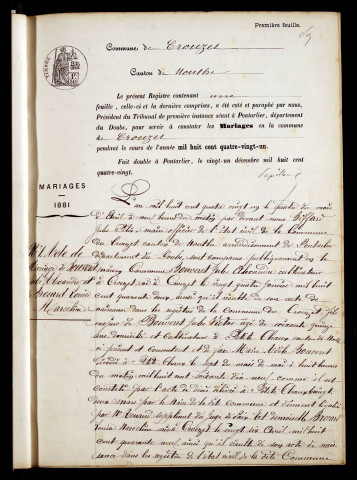 Première feuille.
Commune de Crouzet
Canton de Mouthe
Le présent Registre contenant une
feuille, celle-ci et la dernière comprises, a été coté et paraphé par nous,
Président du Tribunal de première instance séant à Pontarlier, département
du Doubs, pour servir à constater les Mariages en la commune
de Crouzet
pendant le cours de l'année mil huit cent quatre-vingt-un.
Fait double à Pontarlier, le vingt-un décembre mil huit cent
quatre-vingt.
MARIAGES
1881
L'an mil huit cent quatre vingt un le trente du mois
d'Avril à neuf heures du matin par devant nous
Jules maire officier de l'état civil de la Commune
du Crouzet canton de Mouthe arrondissement de Pontarlier
Acte de
département du Doubs, sont comparu publiquement en la
Mariage de
maison Commune Jules Alexandre cultivateur
Alexandre et
à Crouzet, né à Crouzet le vingt quatre janvier mil huit
Louise
cent quarante deux, ainsi qu'il résulte de son acte de
naissance dans les registres de la Commune du Crouzet fils
majeur de Jules Victor âgé de soixante quinze
ans domicilié et Cultivateur à Petite Chaux canton de Mouthe
ci présent et consentant et de feue Marie
décédée à Petite Chaux le sept du mois de mai à huit heures
du matin mil huit cent soixante dix neuf comme il est
constaté par l'acte de décès délivré à Petite Chaux
deux mars par le Maire de la dite Commune et dûment légalisé
par Mr suppléant du juge de Paix. Et demoiselle
Louise née à Crouzet le vingt six Avril mil huit
cent quarante neuf, ainsi qu'il résulte de son acte de nais-
sance dans les registres de l'état civil de la dite Commune